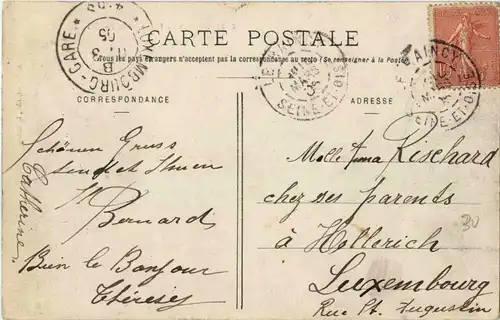 CARTE POSTALE
Tous les pays étrangers n'acceptent pas la correspondance au recto (Se renseigner à la Poste)
CORRESPONDANCE
ADRESSE
LUXEMBOURG-GARE
05
LE RAINCY
MARS
05
SEINE-ET-OISE
RAINCY
SEINE-ET-OISE
Schönen Gruss
sendet Ihnen
Bernard
Catherine
Bien le Bonjour
Thérèse
Melle Anna Rischard
chez ses parents
à Hollerich
Luxembourg
Rue St. Augustin
30